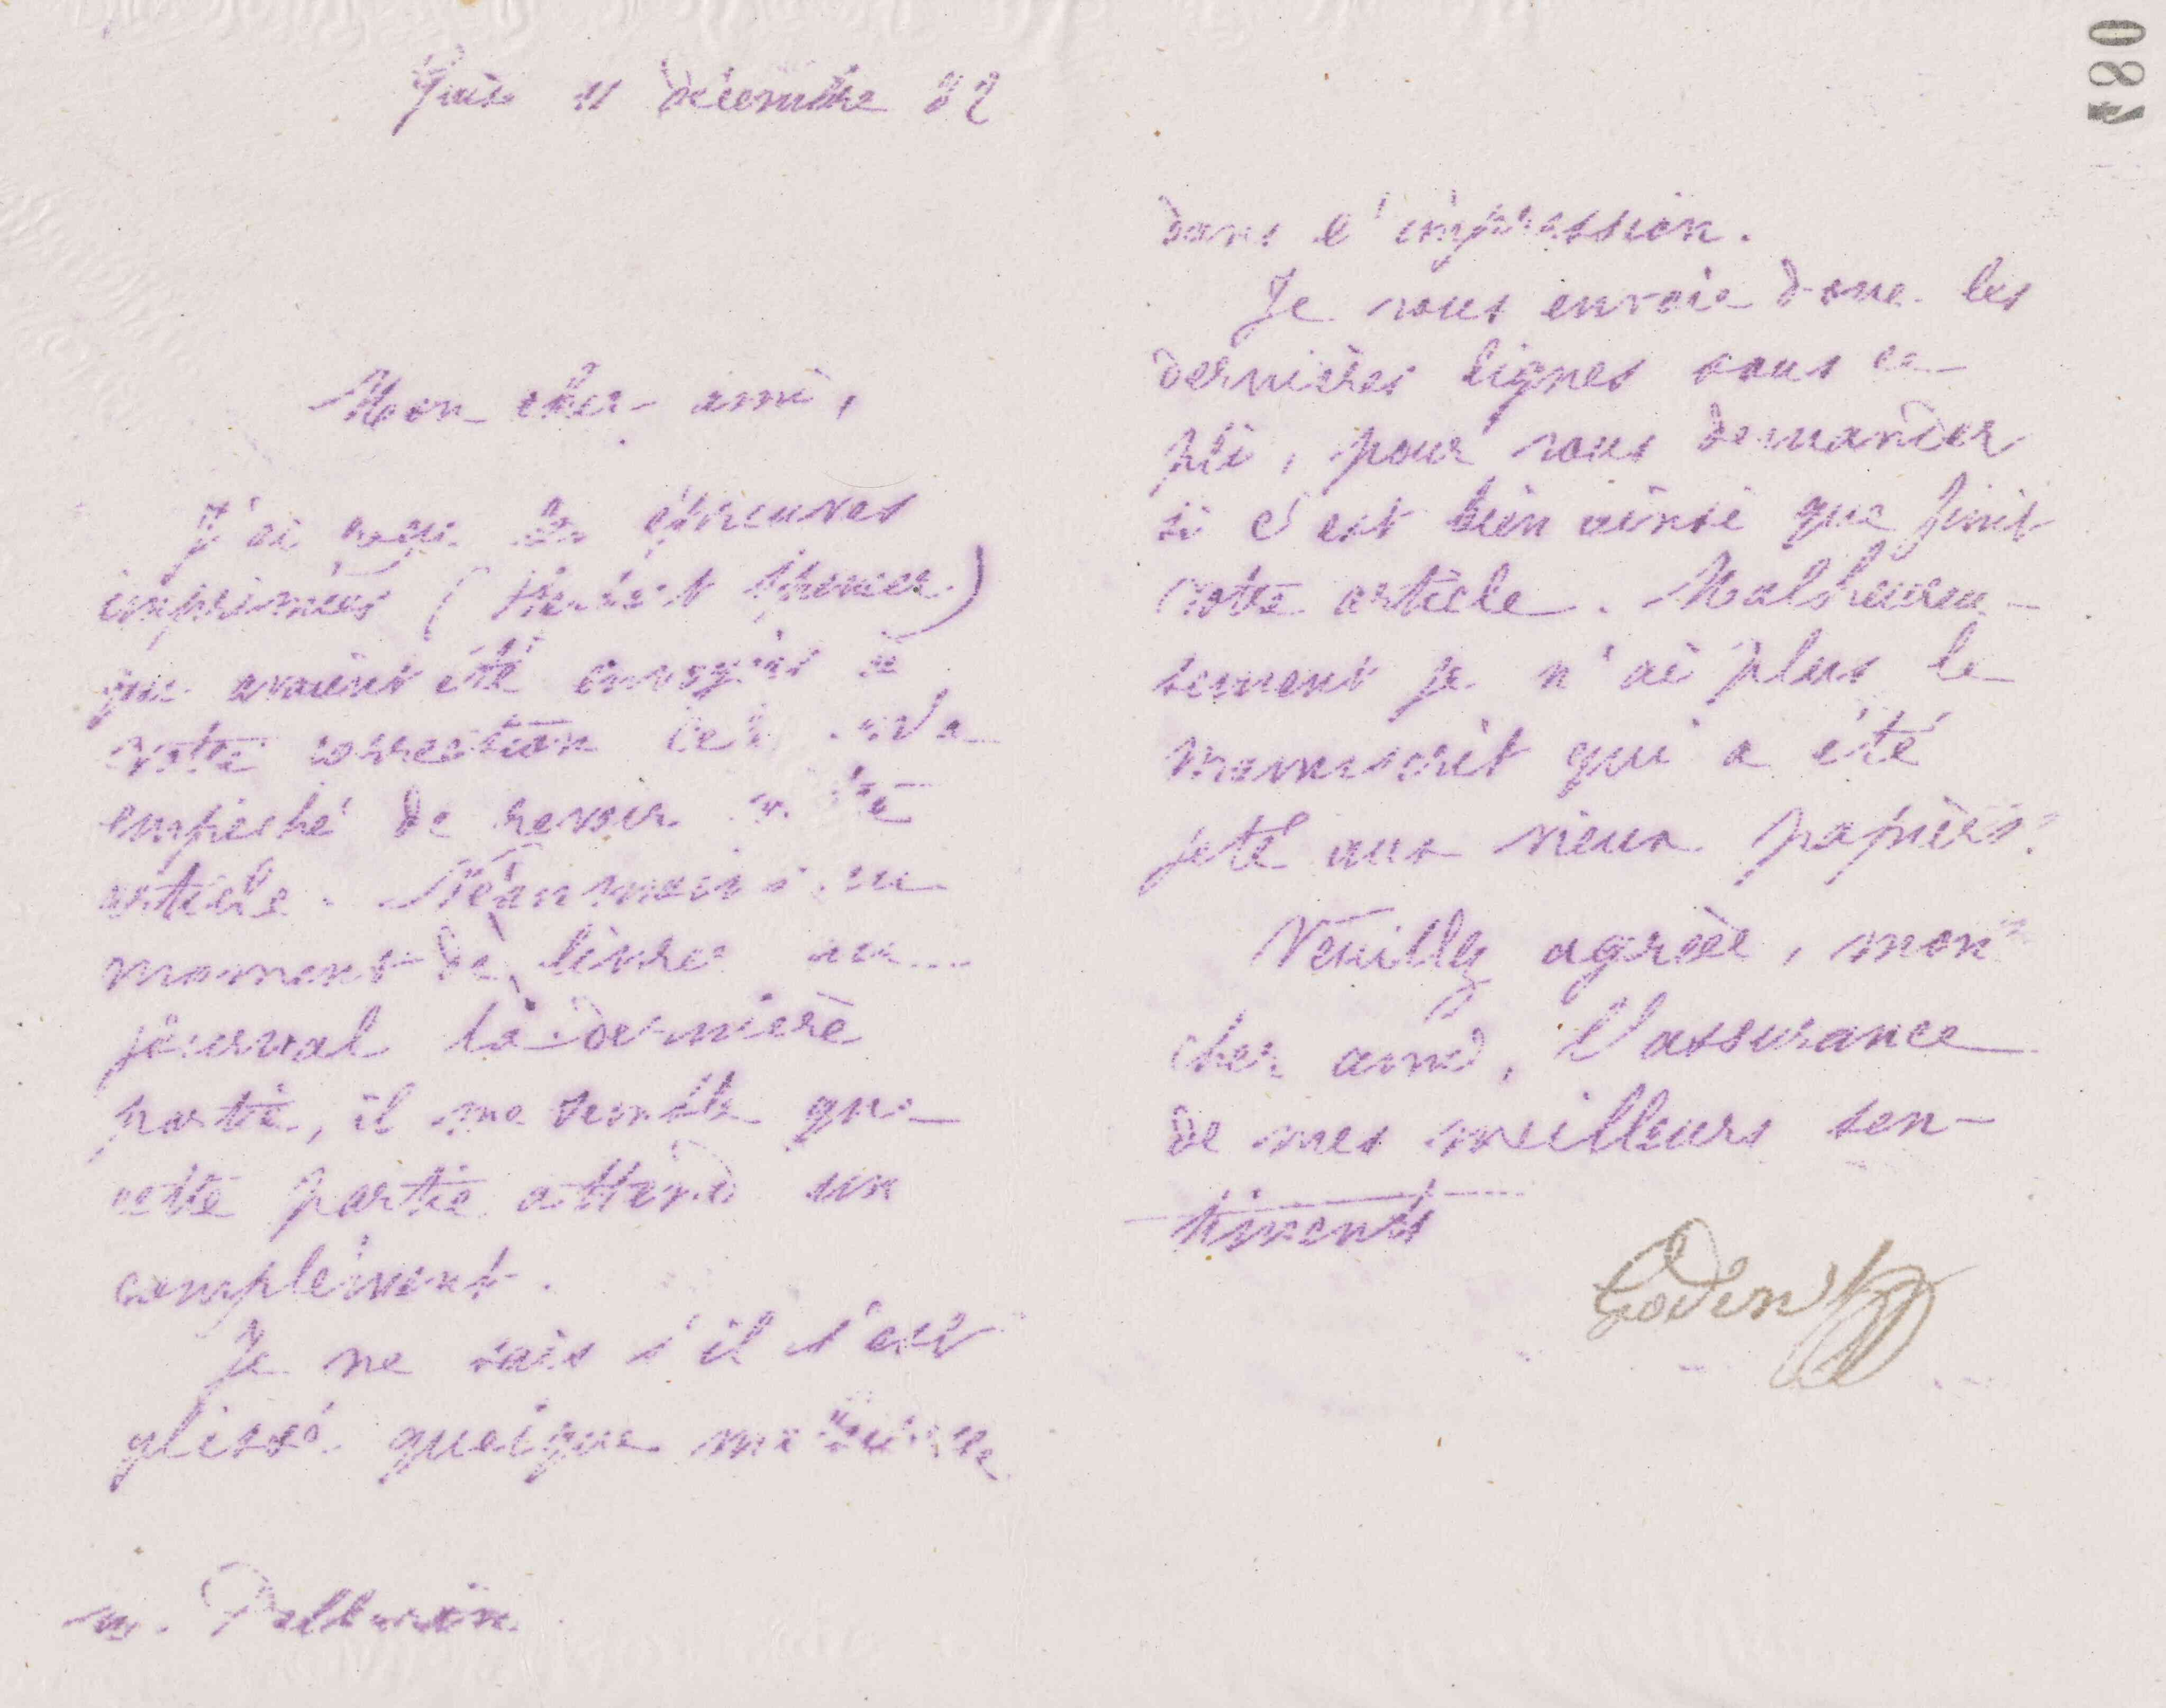 Guise 11 décembre 82
Mon cher ami,
J'ai reçu les épreuves
imprimées (Herbert Spencer)
qui avaient été envoyées à
votre correction cela m'a
empêché de revoir votre
article. Néanmoins au
moment de livrer au
journal la dernière
partie, il me semble que
cette partie attend un
complément.
Je ne sais s'il s'est
glissé quelque
M. Pellarin
dans l'impression.
Je vous envoie donc les
dernières lignes sous ce
pli, pour vous demander
si c'est bien ainsi que finit
votre article. Malheureu-
sement je n'ai plus le
manuscrit qui a été
jeté aux vieux papiers.
Veuillez agréer, mon
cher ami, l'assurance
de mes meilleurs sen-
timents
Godin
480